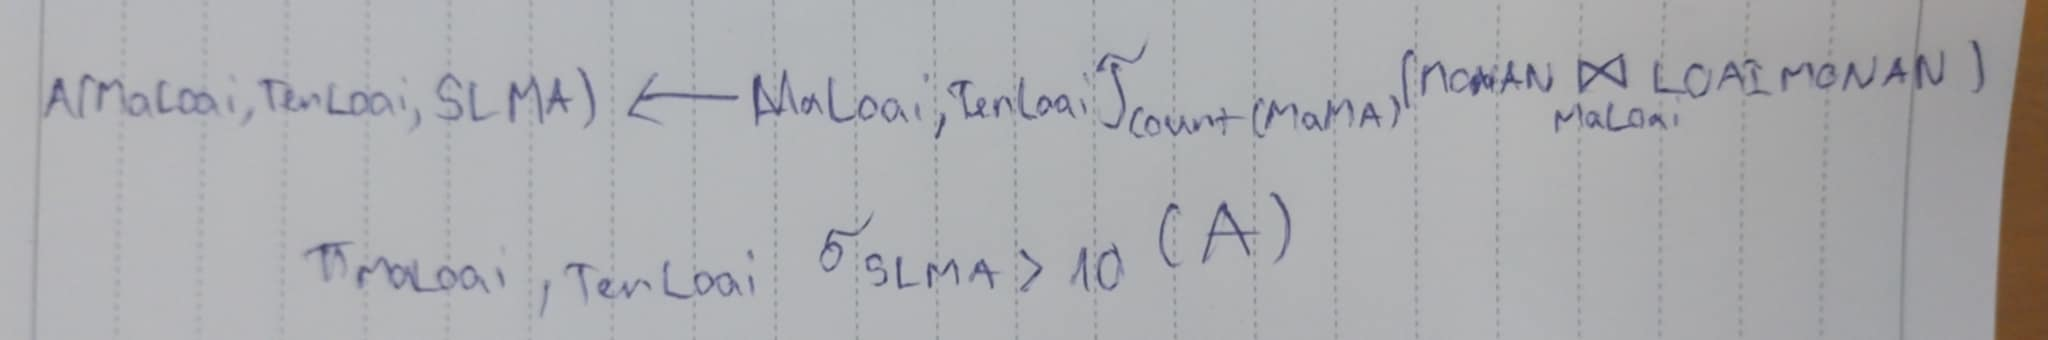 A(MaLoai, TenLoai, SLMA) ← MaLoai, TenLoai ℑ Count(MaMA) (MONAN ⋈ MaLoai LOAIMONAN)
π MaLoai, TenLoai σ SLMA > 10 (A)